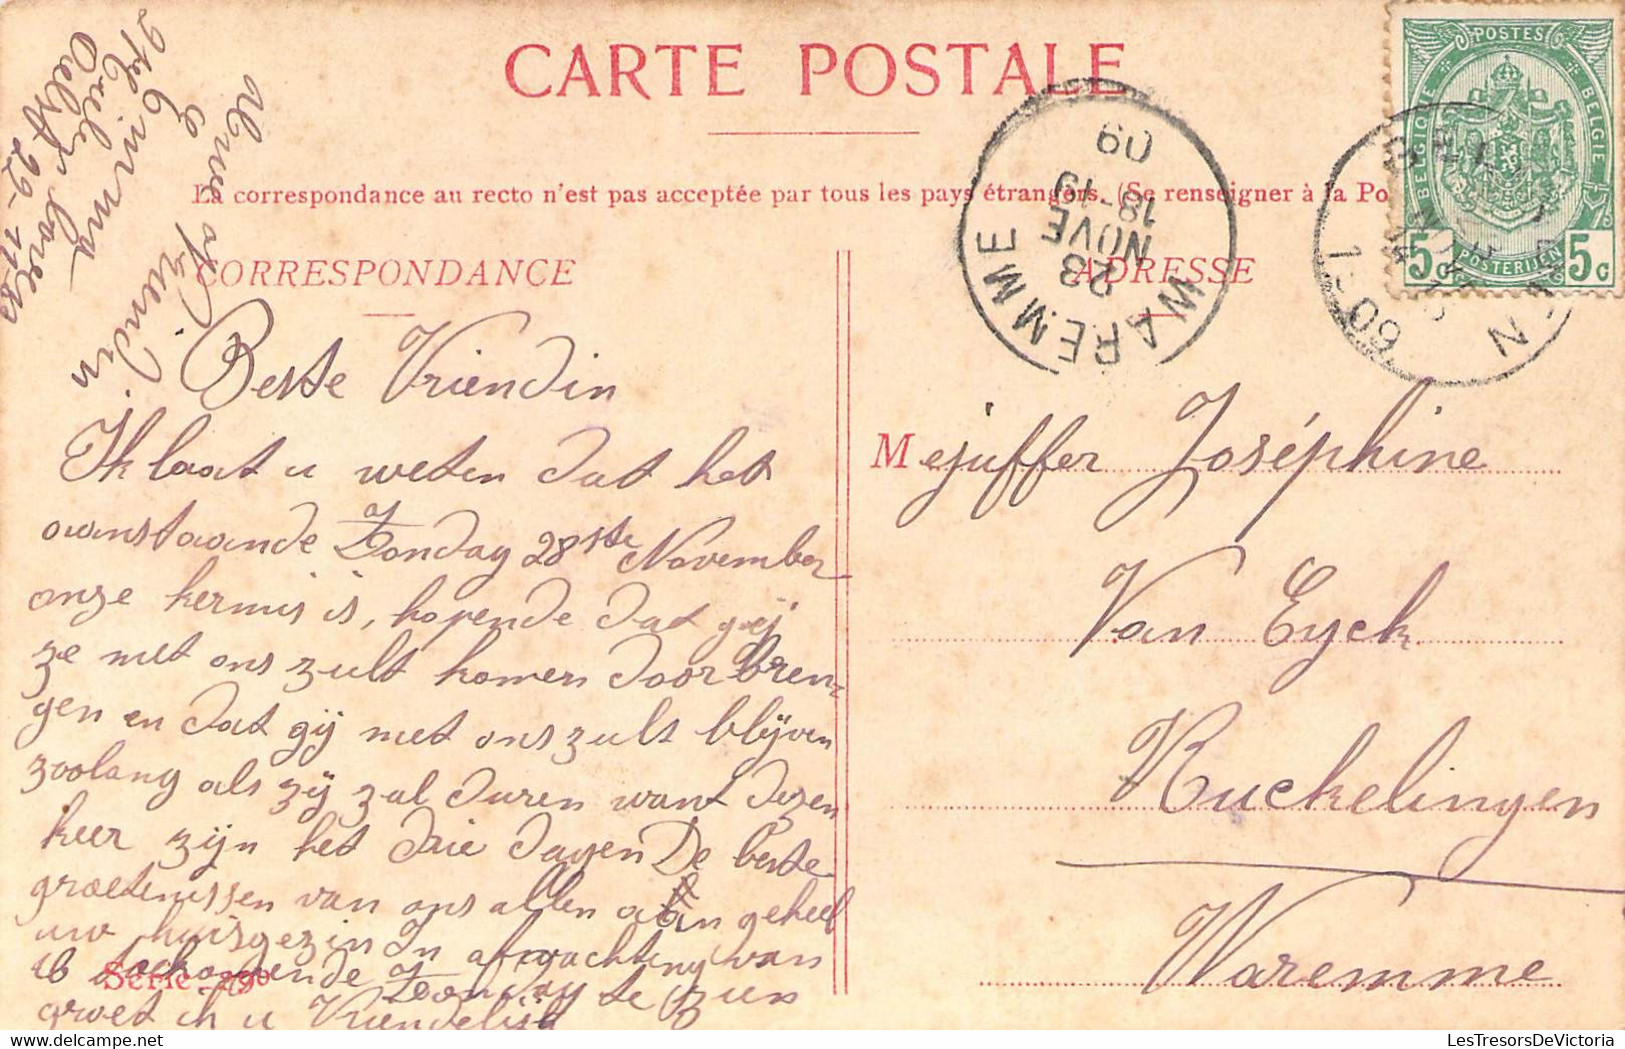 CARTE POSTALE
La correspondance au recto n'est pas acceptée par tous les pays étrangers. (Se renseigner à la Po
CORRESPONDANCE
ADRESSE
POSTES
BELGIQUE
BELGIE
POSTERIJEN
5c 5c
WAREMME
23
NOVE
18-19
09
Beste Vriendin
Ik laat u weten dat het
aanstaande Zondag 28ste November
onze kermis is, hopende dat gij
ze met ons zult komen door bren-
gen en dat gij met ons zult blijven
zoolang als zij zal duren want dezen
keer zijn het drie dagen De beste
groetenissen van ons allen aan geheel
uw huisgezin In afwachting van
u toekomende Zondag te zien
groet ik u Vriendelijk
uwe
Vriendin
Mejuffer Joséphine
Van Eyck
Ruckelingen
Waremme
Série